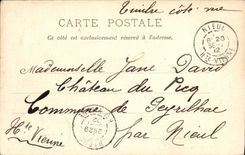 Timbre côté vue
CARTE POSTALE
Ce côté est exclusivement réservé à l'adresse.
NIEUL
20
Hte VIENNE
Mademoiselle Jane David
Château du Picq
Commune de Peyrilhac
par Nieul
Hte Vienne